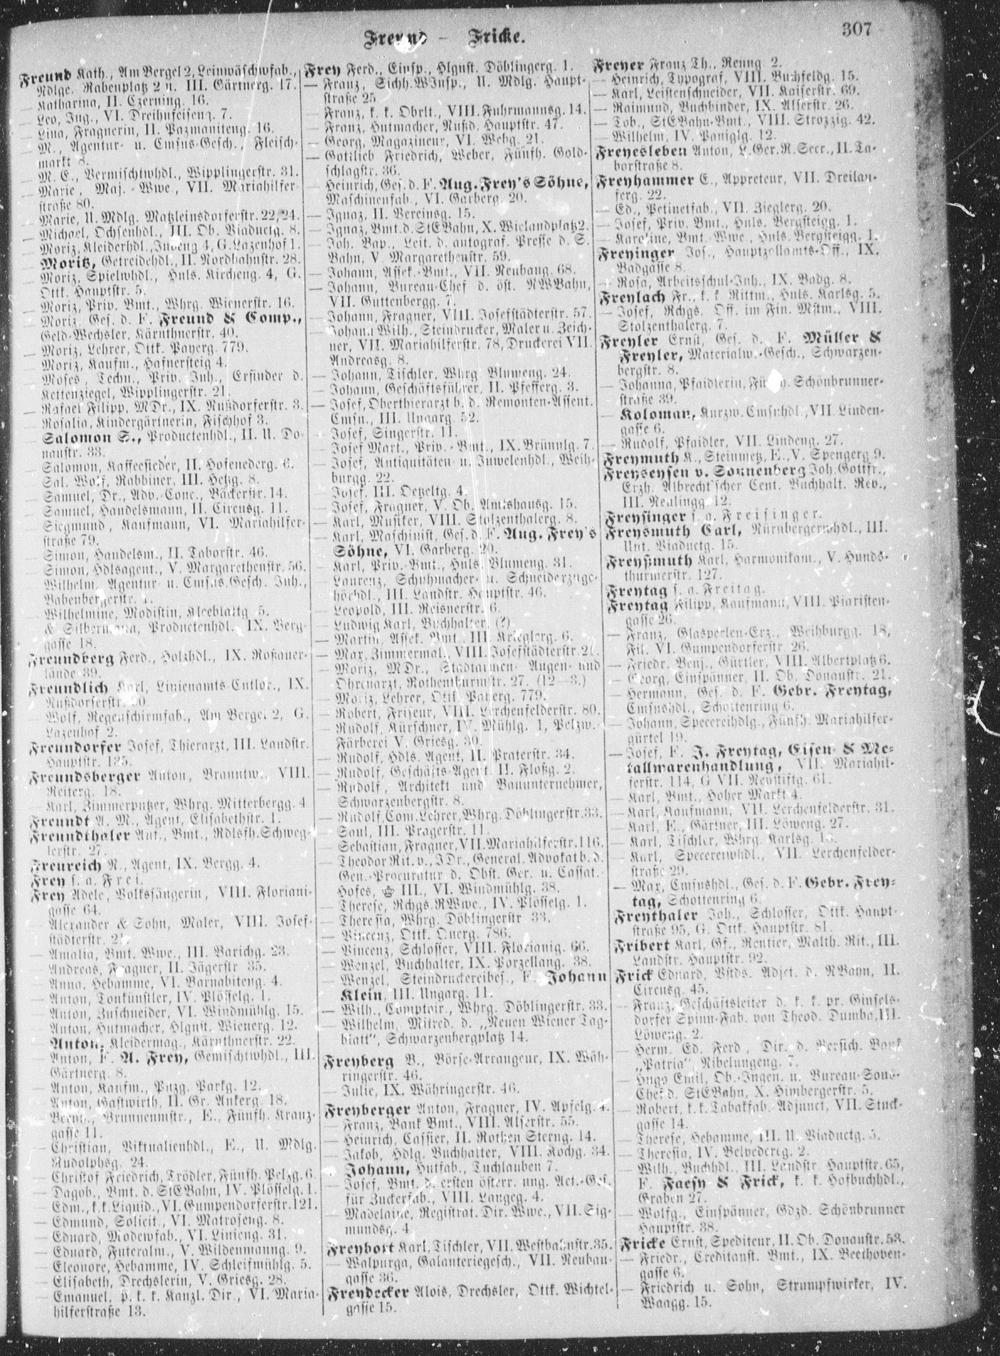 Freund — Fricke.
307
Freund Kath., Am Bergel 2, Leinwäschwfab.,
Ndlge. Rabenplatz 2 u. III. Gärtnerg. 17.
— Katharina, II. Czerning. 16.
— Leo, Ing., VI. Dreihufeiseng. 7.
— Lina, Fragnerin, II. Pazmaniteng. 16.
— M., Agentur- u. Cmsns-Gesch., Fleisch-
markt 8.
— M. E., Vermischtwhdl., Wipplingerstr. 31.
— Marie, Maj.-Wwe., VII. Mariahilfer-
straße 80.
— Marie, U. Mdlg. Matzleinsdorferstr. 22/24.
— Michael, Ochsenhdl., III. Ob. Viaductg. 8.
— Moriz, Kleiderhdl., Judeng 4, G. Lazenhof 1.
— Moritz, Getreidehdl., II. Nordbahnstr. 28.
— Moriz, Spielwhdl., Huls. Kircheng. 4, G.
Ottk. Hauptstr. 5.
— Moriz, Priv. Bmt., Whrg. Wienerstr. 16.
— Moriz, Ges. d. F. Freund & Comp.,
Geld-Wechsler, Kärnthnerstr. 40.
— Moriz, Lehrer, Ottk. Payerg. 779.
— Moriz, Kaufm., Hafnersteig 4.
— Moses, Techn., Priv. Inh., Erfinder d.
Kettenziegel, Wipplingerstr. 21.
— Rafael Filipp, MDr., IX. Nußdorferstr. 3.
— Rosalia, Kindergärtnerin, Fischhof 3.
— Salomon S., Productenhdl., II. U. Do-
naustr. 33.
— Salomon, Kaffeesieder, II. Hofenederg. 6.
— Sal. Wolf, Rabbiner, III. Hetzg. 8.
— Samuel, Dr., Adv.-Conc., Bäckerstr. 14.
— Samuel, Handelsmann, II. Circusg. 11.
— Siegmund, Kaufmann, VI. Mariahilfer-
straße 79.
— Simon, Handelsm., II. Taborstr. 46.
— Simon, Hdlsagent., V. Margarethenstr. 56.
— Wilhelm, Agentur- u. Cmsns.Gesch. Inh.,
Babenbergerstr. 1.
— Wilhelmine, Modistin, Kleeblattg 5.
— & Productenhdl. IX. Berg-
gasse 18.
Freundberg Ferd., Holzhdl., IX. Roßauer-
lände 39.
Freundlich Karl, Linienamts-Cntlor., IX.
Nußdorferstr.
— Wolf, Regenschirmfab., Am Bergel 2, G.
Lazenhof 2.
Freundorfer Josef, Thierarzt, III. Landstr.
Hauptstr. 135.
Freundsberger Anton, Branntw., VIII.
Reiterg. 18.
— Karl, Zimmerputzer, Whrg. Mitterbergg. 4
Freundt A. M., Agent, Elisabethstr. 1.
Freundthaler Ant., Bmt., Rdlfsh. Schweg-
lerstr. 27.
Freureich N., Agent, IX. Bergg. 4.
Frey s. a. Frei.
Frey Adele, Volkssängerin, VIII. Floriani-
gasse 64.
— Alexander & Sohn, Maler, VIII. Josef-
städterstr.
— Amalia, Bmt. Wwe., III. Barichg. 23.
— Andreas, Fragner, II. Jägerstr 35.
— Anna, Hebamme, VI. Barnabiteng. 4.
— Anton, Tonkünstler, IV. Plösselg. 1.
— Anton, Zuschneider, VI. Windmühlg. 15.
— Anton, Hutmacher, Hlgnst. Wienerg. 12.
— Anton, Kleidermag., Kärnthnerstr. 22.
— Anton, F. A. Frey, Gemischtwhdl., III.
Gärtnerg. 8.
— Anton, Kaufm., Pnzg. Parkg. 12.
— Anton, Gastwirth, II. Gr. Ankerg. 18.
— Brunnenmstr., E., Fünfh. Kranz-
gasse 11.
— Christian, Viktualienhdl., E., U. Mdlg.
Rudolphsg. 24.
— Christof Friedrich, Trödler, Fünfh. Pelzg. 6.
— Dagob., Bmt. d. StEBahn, IV. Plösselg. 1.
— Edm., k.k. Liquid., VI. Gumpendorferstr. 121.
— Edmund, Solicit., VI. Matroseng. 8.
— Eduard, Modewfab., VI. Linieng. 31.
— Eduard, Futeralm., V. Wildenmanng. 9.
— Eleonore, Hebamme, IV. Schleifmühlg. 5.
— Elisabeth, Drechslerin, V. Griesg. 28.
— Emanuel, p. k. k. Kanzl. Dir., VI. Maria-
hilferstraße 13.
Frey Ferd., Einsp., Hlgnst. Döblingerg. 1.
— Franz, Sichh.WInsp., U. Mdlg. Haupt-
straße 25
— Franz, k. k. Obrlt., VIII. Fuhrmannsg. 14.
— Franz, Hutmacher, Nußd. Hauptstr. 47.
— Georg, Magazineur, VI. Webg. 21.
— Gottlieb Friedrich, Weber, Fünfh. Gold-
schlagstr. 36.
— Heinrich, Ges. d. F. Aug. Frey's Söhne,
Maschinenfab., VI. Garberg. 20.
— Ignaz, II. Vereinsg. 15.
— Ignaz, Bmt. d. StEBahn, X. Wielandplatz 2.
— Joh. Bap., Leit. d. autograf. Presse d. S.
Bahn, V. Margarethenstr. 59.
— Johann, Assek.-Bmt., VII. Neubaug. 68.
— Johann, Bureau-Chef d. öst. NWBahn,
VII. Guttenbergg. 7.
— Johann, Fragner, VIII. Josefstädterstr. 57.
— Johann Wilh., Steindrucker, Maler u. Zeich-
ner, VII. Mariahilferstr. 78, Druckerei VII.
Andreasg. 8.
— Johann, Tischler, Whrg Blumeng. 24.
— Johann, Geschäftsführer, II. Pfefferg. 3.
— Josef, Oberthierarzt b. d. Remonten-Assent.
Cmsn., III. Ungarg. 52.
— Josef, Singerstr. 11.
— Josef Mart., Priv.-Bmt., IX. Brünnlg. 7.
— Josef, Antiquitäten- u. Juwelenhdl., Weih-
burgg. 22.
— Josef, III. Oetzeltg. 4.
— Josef, Fragner, V. Ob. Amtshausg. 15.
— Karl, Musiker, VIII. Stolzenthalerg. 8.
— Karl, Maschinist, Ges. d. F. Aug. Frey's
Söhne, VI. Garberg. 20.
— Karl, Priv.-Bmt., Huls. Blumeng. 31.
— Laurenz, Schuhmacher- u. Schneiderzuge-
hörhdl., III. Landstr. Hauptstr. 46.
— Leopold, III. Reisnerstr. 6.
— Ludwig Karl, Buchhalter. (?)
— Martin, Assek. Bmt., III. Krieglerg. 6.
— Max, Zimmermal., VIII. Josefstädterstr. 21.
— Moriz, MDr., Stadtarmen-Augen- und
Ohrenarzt, Rothenthurmstr. 27. (12—3.)
— Moriz, Lehrer, Ottk. Payerg. 779.
— Robert, Friseur, VIII. Lerchenfelderstr. 80.
— Rudolf, Kürschner, IV. Mühlg. 1, Pelzw.-
Färberei V. Griesg. 30.
— Rudolf, Hdls. Agent, II. Praterstr. 34.
— Rudolf, Geschäfts-Agent, II. Floßg. 2.
— Rudolf, Architekt und Bauunternehmer,
Schwarzenbergstr. 8.
— Rudolf, Com. Lehrer, Whrg. Döblingerstr. 33.
— Saul, III. Pragerstr. 11.
— Sebastian, Fragner, VII. Mariahilferstr. 116.
— Theodor Rit. v., JDr., General-Advokat b. d.
Gen.-Procuratur d. Obst. Ger. u. Cassat.-
Hofes, III., VI. Windmühlg. 38.
— Therese, Rchgs.RWwe., IV. Plösselg. 1.
— Theresia, Whrg. Döblingerstr 33.
— Vincenz, Ottk. Querg. 786.
— Vincenz, Schlosser, VIII. Florianig. 66.
— Wenzel, Buchhalter, IX. Porzellang. 38.
— Wenzel, Steindruckereibes., F. Johann
Klein, III. Ungarg. 11.
— Wilh., Comptoir., Whrg. Döblingerstr. 33.
— Wilhelm, Mitred. d. „Neuen Wiener Tag-
blatt", Schwarzenbergplatz 14.
Freyberg B., Börse-Arrangeur, IX. Wäh-
ringerstr. 46.
— Julie, IX. Währingerstr. 46.
Freyberger Anton, Fragner, IV. Apfelg. 4.
— Franz, Bank Bmt., VIII. Alserstr. 55.
— Heinrich, Cassier, II. Rothen Sterng. 14.
— Jakob, Hdlg. Buchhalter, VIII. Kochg. 34.
— Johann, Hutfab., Tuchlauben 7.
— Josef, Bmt. d. ersten österr. ung. Act.-Ges.
für Zuckerfab., VIII. Langeg. 4.
— Madelaine, Registrat. Dir. Wwe., VII. Sig-
mundsg. 4.
Freybort Karl, Tischler, VII. Westbahnstr. 35.
— Walpurga, Galanteriegesch., VII. Neubau-
gasse 36.
Freydecker Alois, Drechsler, Ottk. Wichtel-
gasse 15.
Freyer Franz Th., Renng. 2.
— Heinrich, Typograf, VIII. Buchfeldg. 15.
— Karl, Leistenschneider, VII. Kaiserstr. 69.
— Raimund, Buchbinder, IX. Alserstr. 26.
— Tob., StEBahn-Bmt., VIII. Strozzig. 42.
— Wilhelm, IV. Paniglg. 12.
Freyesleben Anton, L.Ger.R.Secr., II. Ta-
borstraße 8.
Freyhammer E., Appreteur, VII. Dreilau-
ferg. 22.
— Ed., Petinetfab., VII. Zieglerg. 20.
— Josef, Priv. Bmt., Huls. Bergsteigg. 1.
— Karoline, Bmt.-Wwe., Huls. Bergsteigg. 1.
Freyinger Jos., Hauptzollamts-Off., IX.
Badgasse 8.
— Rosa, Arbeitschul-Inh., IX. Badg. 8.
Freylach Fr., k. k. Rittm., Huls. Karlsg. 5.
— Josef, Rchgs. Off. im Fin. Mstm., VIII.
Stolzenthalerg. 7.
Freyler Ernst, Ges. d. F. Müller &
Freyler, Materialw.-Gesch., Schwarzen-
bergstr. 8.
— Johanna, Pfaidlerin, Schönbrunner-
straße 39.
— Koloman, Kurzw. Cmsnhdl., VII. Linden-
gasse 6.
— Rudolf, Pfaidler, VII. Lindeng. 27.
Freymuth K., Steinmetz, E., V. Spengerg 9.
Freyseysen v. Sonnenberg Joh. Gottfr.,
Erzh. Albrecht'scher Cent. Buchhalt. Rev.,
III. Realingg. 12.
Freysinger s. a. Freisinger.
Freysmuth Carl, Nürnbergerwhdl., III.
Unt. Viaductg. 15.
Freyßmuth Karl, Harmonikam., V. Hunds-
thurmerstr. 127.
Freytag s. a. Freitag.
Freytag Filipp, Kaufmann, VIII. Piaristen-
gasse 26.
— Franz, Glasperlen-Erz., Weihburgg. 18,
Fil. VI. Gumpendorferstr. 26.
— Friedr. Benj., Gürtler, VIII. Albertplatz 6.
— Georg, Einspänner, II. Ob. Donaustr. 21.
— Hermann, Ges. d. F. Gebr. Freytag,
Cmsnshdl., Schottenring 6.
— Johann, Specereihdlg., Fünfh. Mariahilfer-
gürtel 19.
— Josef, F. J. Freytag, Eisen- & Me-
tallwarenhandlung, VII. Mariahil-
ferstr. 114, G VII. Neustiftg. 61.
— Karl, Bmt., Hoher Markt 4.
— Karl, Kaufmann, VII. Lerchenfelderstr. 31.
— Karl, E., Gärtner, III. Löweng. 27.
— Karl, Tischler, Whrg. Karlsg.
— Karl, Specereiwhdl., VII. Lerchenfelder-
straße 29.
— Max, Cmsnshdl., Ges. d. F. Gebr. Frey-
tag, Schottenring 6.
Freythaler Joh., Schlosser, Ottk. Haupt-
straße 95, G. Ottk. Hauptstr. 81.
Fribert Karl, Gf., Rentier, Malth. Rit., III.
Landstr. Hauptstr. 92.
Frick Eduard, Vstds. Adjct. d. NBahn, II.
Circusg. 45.
— Franz, Geschäftsleiter d. k. k. pr. Ginsels-
dorfer Spinn-Fab. von Theod. Dumba, III.
Löweng. 2.
— Herm. Ed. Ferd., Dir. d. Versich. Bank
„Patria" Nibelungeng. 7.
— Hugo Emil, Ob.-Ingen. u. Bureau-Sous-
Chef d. StEBahn, X. Himbergerstr. 5.
— Robert, k.k. Tabakfab. Adjunct, VII. Stuck-
gasse 14.
— Therese, Hebamme, III. U. Viaductg. 5.
— Theresia, IV. Belvederig. 2.
— Wilh., Buchhdl., III. Landstr. Hauptstr. 65,
F. Faesy & Frick, k. k. Hofbuchhdl.,
Graben 27.
— Wolfg., Einspänner, Gdzd. Schönbrunner
Hauptstr. 38.
Fricke Ernst, Spediteur, II. Ob. Donaustr. 53.
— Friedr., Creditanst. Bmt., IX. Beethoven-
gasse 6.
— Friedrich u. Sohn, Strumpfwirker, IV.
Waagg. 15.